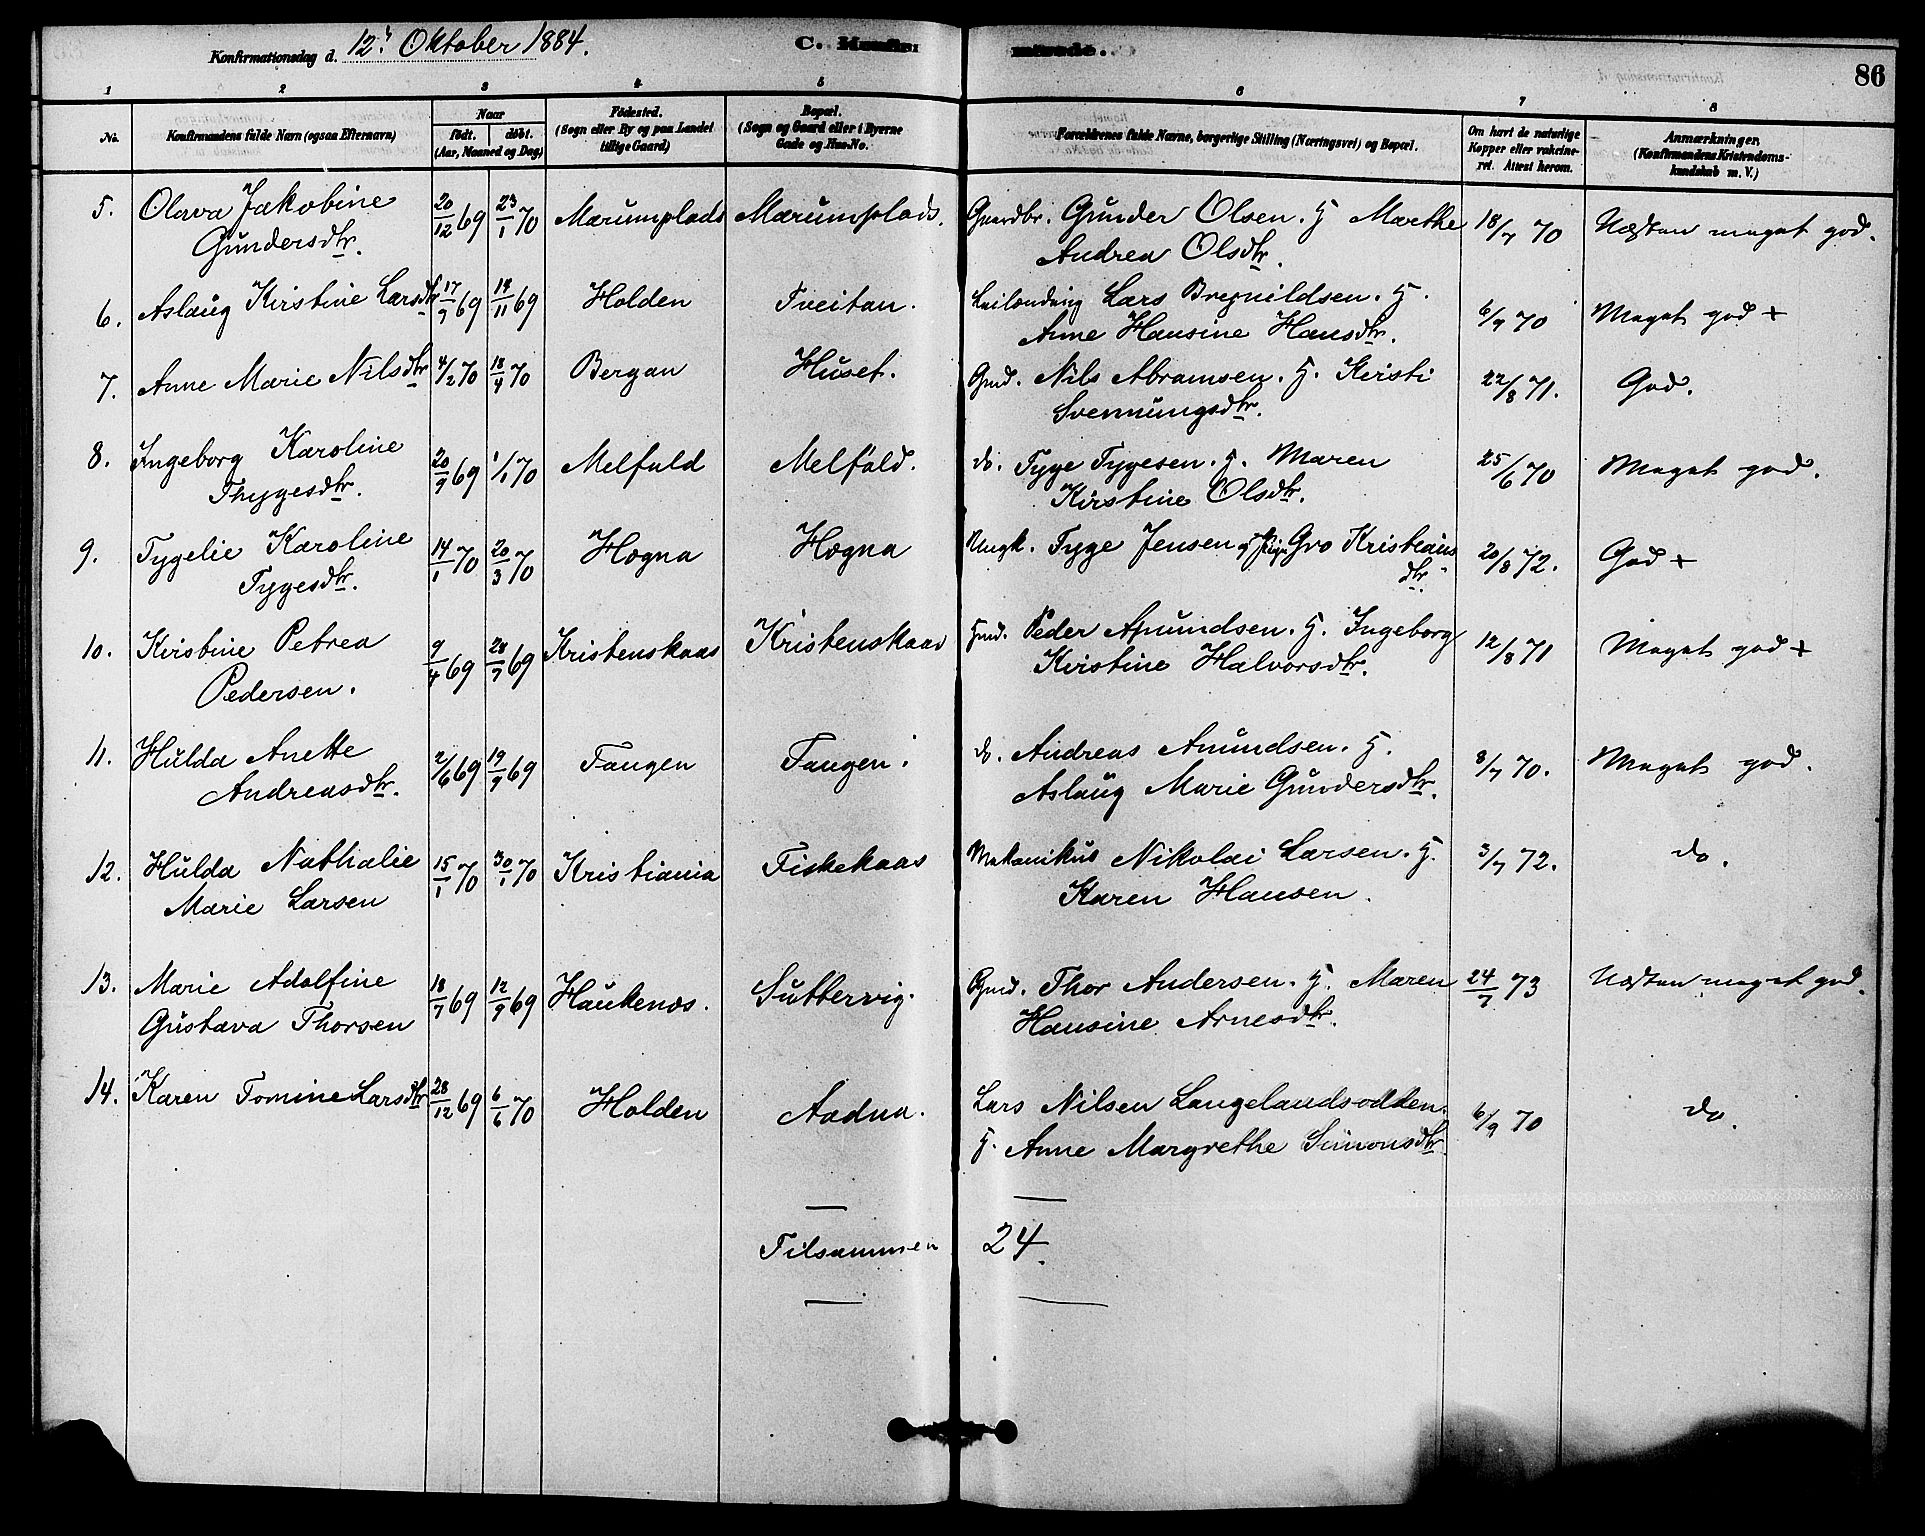 Konfirmationsdag d. 12te Oktober 1884.
C. Konfir
merede.
86
1 2 3 4 5 6 7 8
No.
Konfirmandens fulde Navn (ogsaa Efternavn)
Naar
født. døbt.
(Aar, Maaned og Dag)
Fødested.
(Sogn eller By og paa Landet
tillige Gaard)
Bopæl.
(Sogn og Gaard eller i Byerne
Gade og Hus-No.
Forældrenes fulde Navne, borgerlige Stilling (Næringsvei) og Bopæl.
Om havt de naturlige
Kopper eller vakcine-
ret. Attest herom.
Anmærkninger.
(Konfirmandens Kristendoms-
kundskab m. V.)
5. Olava Jakobine 20/12 69 23/1 70 Mærumplads Mærumplads. Gaardbr. Gunder Olsen. H Marthe 18/7 70 Næsten meget god.
Gundersdtr. Andrea Olsdtr.
6. Aslaug Kirstine Larsdtr 17/9 69 14/11 69 Holden Tveitan. Leilænding Lars Bregnildsen. H. 6/9 70 Meget god +
Anne Hansine Hansdtr.
7. Anne Marie Nilsdtr 4/2 70 18/4 70 Bergan Huset. Gmd. Nils Abramsen. H. Kirsti 22/8 71. God.
Svennungsdtr.
8. Ingeborg Karoline 20/9 69 1/1 70 Melfald Melfald. do. Tyge Tygesen. H. Maren 25/6 70 Meget god.
Thygesdtr. Kirstine Olsdtr.
9. Tygelie Karoline 14/1 70 20/3 70 Hogna Hogna Ungk. Tyge Jensen og Pige Gro Kristians 20/8 72. God +
Tygesdtr. dtr.
10. Kirstine Petrea 9/4 69 28/7 69 Kristenskaas Kristenskaas Gmd. Peder Amundsen. H. Ingeborg 12/8 71 Meget god +
Pedersen. Kirstine Halvorsdtr.
11. Hulda Anette 2/6 69 19/9 69 Tangen Tangen. do. Andreas Amundsen. H. 8/7 70. Meget god.
Andreasdtr. Aslaug Marie Gundersdtr.
12. Hulda Nathalie 15/1 70 30/1 70 Kristiania Fiskekaas Mekanikus Nikolai Larsen. H. 3/7 72. do.
Marie Larsen Karen Hansen.
13. Marie Adolfine 18/7 69 12/9 69 Haukenæs. Suttervig. Gmd. Thor Andersen. H. Maren 24/7 73 Næsten meget god.
Gustava Thorsen Hansine Arnesdtr.
14. Karen Tomine Larsdtr 28/12 69 6/6 70 Holden Aadna. Lars Nilsen Langelandsodden. 6/9 70 do.
H. Anne Margrethe Simonsdtr.
Tilsammen 24.